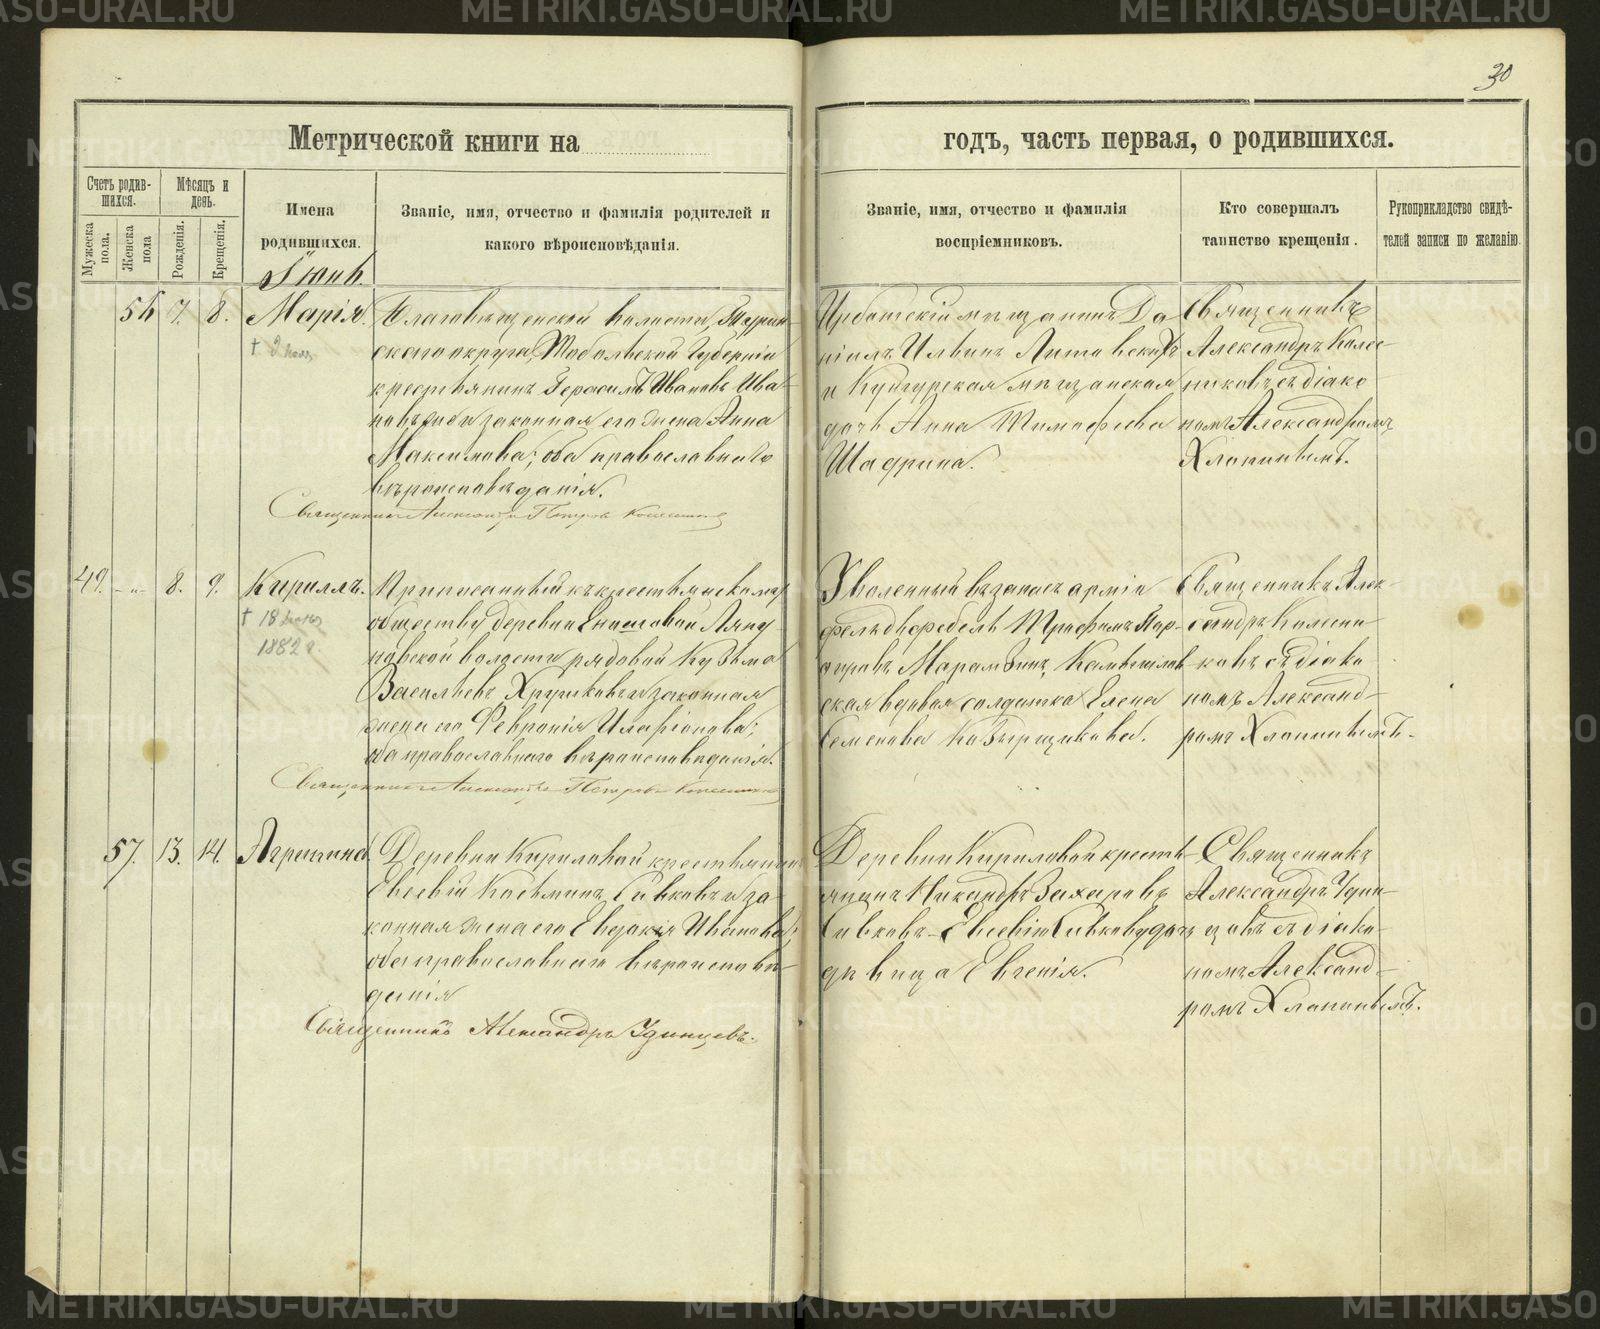 30
Метрической книги на
годъ, часть первая, о родившихся.
Счетъ родив-
шихся.
Мѣсяцъ и
день.
Мужеска
пола.
Женска
пола
Рожденія.
Крещенія.
Имена
родившихся.
Званіе, имя, отчество и фамилія родителей и
какого вѣроисповѣданія.
Званіе, имя, отчество и фамилія
воспріемниковъ.
Кто совершалъ
таинство крещенія.
Рукоприкладство свидѣ-
телей записи по желанію.
Іюнь.
56 7. 8. Марія.
Благовѣщенской волости, Турин-
скаго округа, Тобольской губерніи
крестьянинъ Герасимъ Ивановъ Ива-
новъ и законная его жена Анна
Максимова; оба православнаго
вѣроисповѣданія.
Священникъ Александръ Петровъ
Ирбитскій мѣщанинъ Да
ніилъ Ильинъ
и Кунгурская мѣщанская
дочь Анна Тимофеева
Шадрина.
Священникъ
Александръ Колес-
никовъ съ діако-
номъ Александромъ
Хлопинымъ.
49. -"- 8. 9. Кириллъ.
† 18
1882 г.
Приписанный къ крестьянскому
обществу деревни
рядовой Кузьма
Васильевъ Хрушковъ и законная
жена его Февронія Иларіонова;
оба православнаго вѣроисповѣданія.
Священникъ Александръ Петровъ
Уволенный въ запасъ арміи
фельдфебель Трофимъ
ская вдовая солдатка Елена
Семенова Козырщикова.
Священникъ Алек-
сандръ Колесни-
ковъ съ діако
номъ Александ-
ромъ Хлопинымъ.
57. 13. 14. Агрепина.
Деревни Кириловой крестьянинъ
Евсевій Косьминъ Сивковъ и за-
конная жена его Евдокія Иванова;
оба православнаго вѣроисповѣ-
данія
Священникъ Александръ Удинцевъ.
Деревни Кириловой кресть-
янинъ Никандръ Захаровъ
Сивковъ
дѣвица Евгенія.
Священникъ
Александръ Удин-
цовъ съ діако-
номъ Александ-
ромъ Хлопинымъ.
METRIKI.GASO-URAL.RU